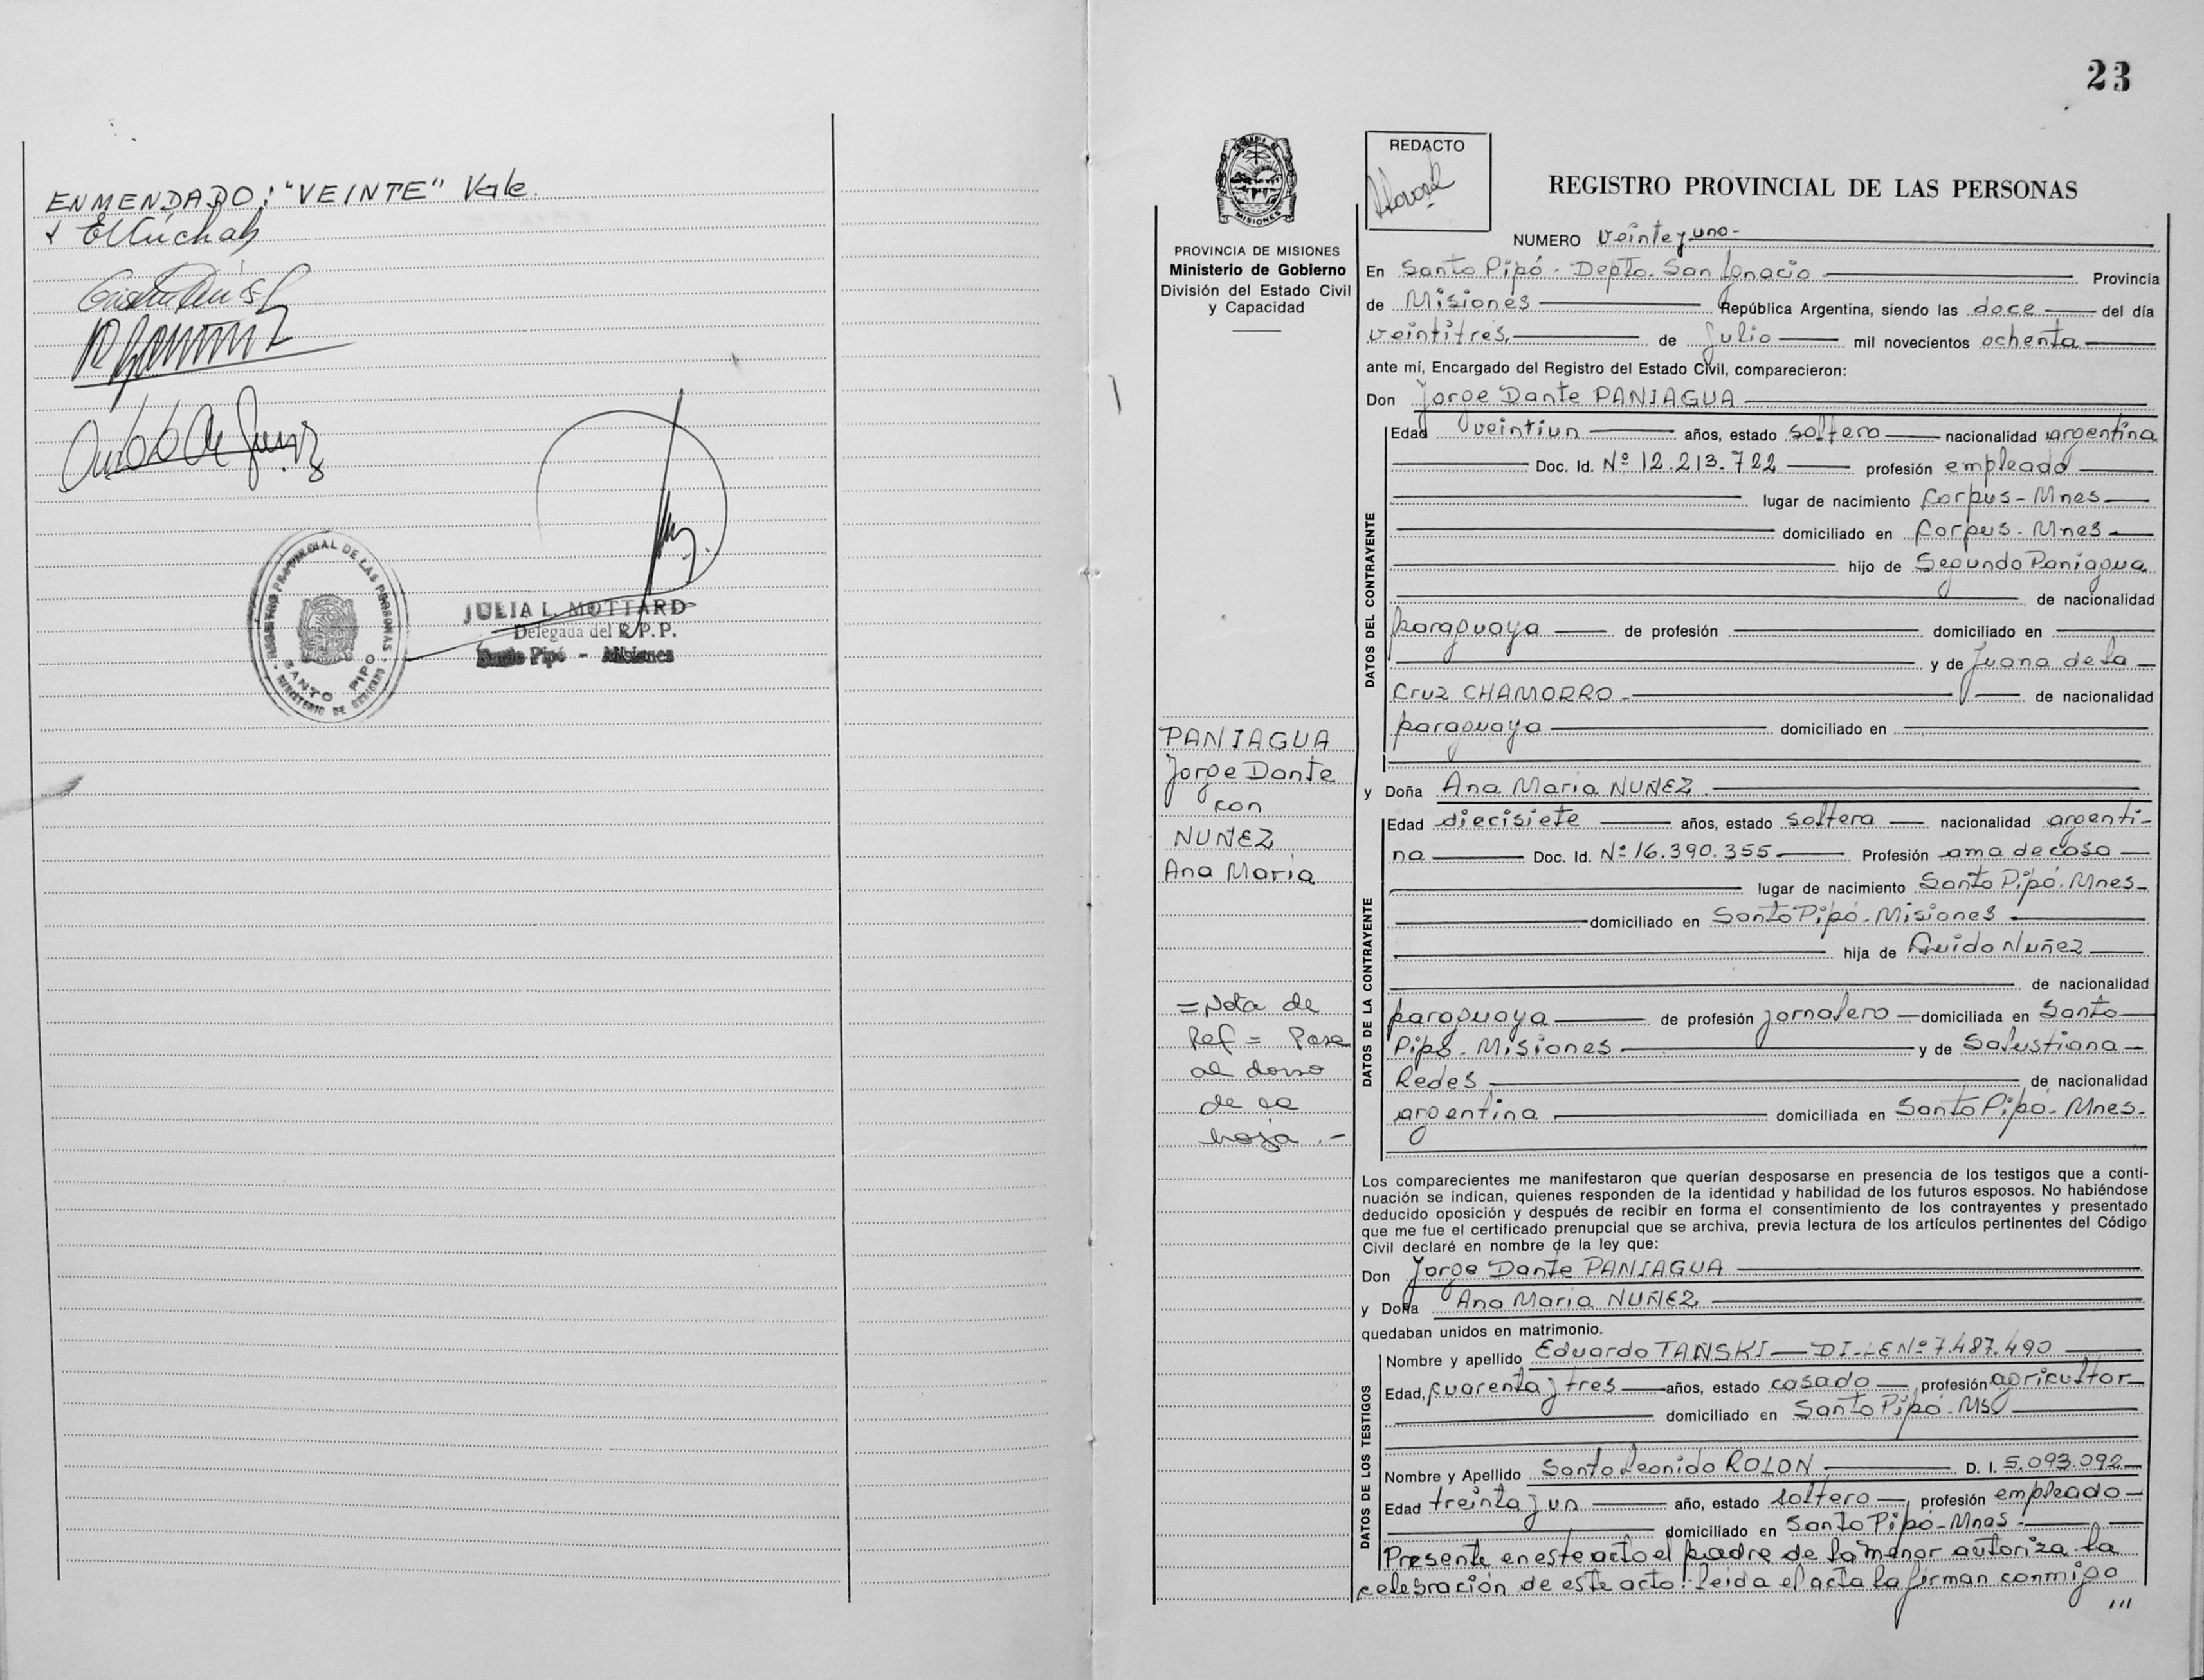 ENMENDADO: "VEINTE" Vale.
REGISTRO PROVINCIAL DE LAS PERSONAS
SANTO PIPO
MINISTERIO DE GOBIERNO
JULIA L. MOTTARD
Delegada del R.P.P.
Santo Pipó - Misiones
23
PROVINCIA DE MISIONES
Ministerio de Gobierno
División del Estado Civil
y Capacidad
PANIAGUA
Jorge Dante
con
NUÑEZ
Ana Maria
= Nota de
Ref = Pase
al dorso
de la
hoja .-
REDACTO
REGISTRO PROVINCIAL DE LAS PERSONAS
NUMERO veinte y uno-
En Santo Pipó - Depto. San Ignacio Provincia
de Misiones República Argentina, siendo las doce del día
veintitres, de Julio mil novecientos ochenta
ante mí, Encargado del Registro del Estado Civil, comparecieron:
Don Jorge Dante PANIAGUA
DATOS DEL CONTRAYENTE
Edad veintiun años, estado soltero nacionalidad argentina
Doc. Id. Nº 12.213.722 profesión empleado
lugar de nacimiento Corpus - Mnes
domiciliado en Corpus - Mnes
hijo de Segundo Paniagua
de nacionalidad
paraguaya de profesión domiciliado en
y de Juana de la
Cruz CHAMORRO - de nacionalidad
paraguaya domiciliado en
y Doña Ana Maria NUÑEZ
DATOS DE LA CONTRAYENTE
Edad diecisiete años, estado soltera nacionalidad argenti-
na Doc. Id. Nº 16.390.355 Profesión ama de casa
lugar de nacimiento Santo Pipó. Mnes-
domiciliado en Santo Pipó - Misiones
hija de Guido Nuñez
de nacionalidad
paraguaya de profesión jornalero domiciliada en Santo
Pipó - Misiones y de Salustiana
Redes de nacionalidad
argentina domiciliada en Santo Pipó - Mnes-
Los comparecientes me manifestaron que querían desposarse en presencia de los testigos que a conti-
nuación se indican, quienes responden de la identidad y habilidad de los futuros esposos. No habiéndose
deducido oposición y después de recibir en forma el consentimiento de los contrayentes y presentado
que me fue el certificado prenupcial que se archiva, previa lectura de los artículos pertinentes del Código
Civil declaré en nombre de la ley que:
Don Jorge Dante PANIAGUA
y Doña Ana Maria NUÑEZ
quedaban unidos en matrimonio.
DATOS DE LOS TESTIGOS
Nombre y apellido Eduardo TAÑSKI - DI-LE Nº 7.487.490
Edad, cuarenta y tres años, estado casado profesión agricultor
domiciliado en Santo Pipó - Ms
Nombre y Apellido Santo Leonido ROLON D. I. 5.093.092
Edad treinta y un año, estado soltero, profesión empleado
domiciliado en Santo Pipó - Mnes
Presente en este acto el padre de la menor autoriza la
celebración de este acto. Leida el acta la firman conmigo
///